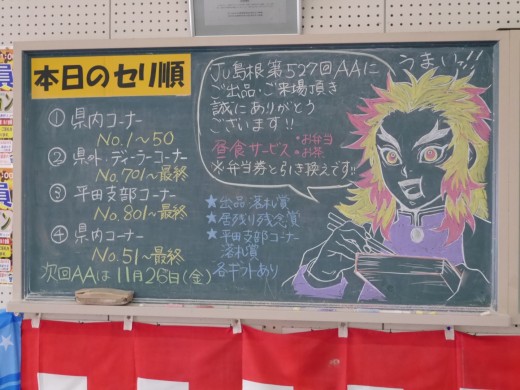 本日のセリ順
① 県内コーナー
No.1〜50
② 県外・ディーラーコーナー
No.701〜最終
③ 平田支部コーナー
No.801〜最終
④ 県内コーナー
No.51〜最終
次回AAは 11月26日(金)
JU島根第527回AAに
ご出品・ご来場頂き
誠にありがとう
ございます!!
昼食サービス
・お弁当
・お茶
※弁当券と引き換えです!!
うまいッ!!
★出品落札賞
★居残り残念賞
★平田支部コーナー
落札賞
各ギフトあり